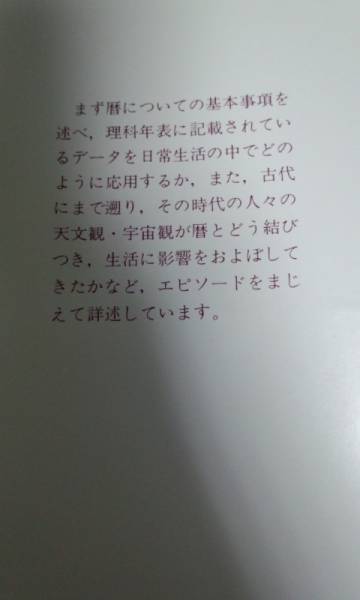 まず暦についての基本事項を
述べ，理科年表に記載されてい
るデータを日常生活の中でどの
ように応用するか，また，古代
にまで遡り，その時代の人々の
天文観・宇宙観が暦とどう結び
つき，生活に影響をおよぼして
きたかなど，エピソードをまじ
えて詳述しています。